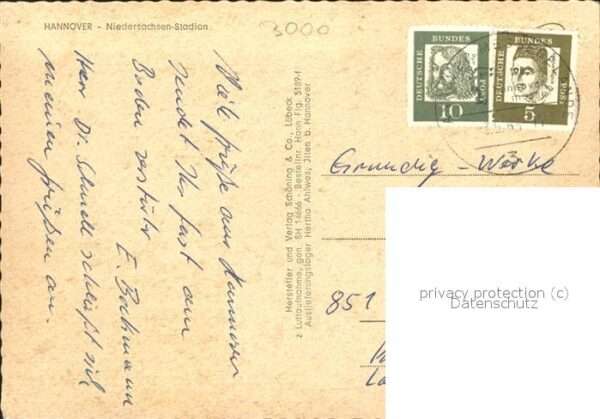 HANNOVER - Niedersachsen-Stadion
3000
Viele Grüße aus Hannover
sendet Ihr fast am
Boden
E. Bachmann
Herr Dr. Schnell schließt sich
meinen Grüßen an.
Hersteller und Verlag Schöning & Co., Lübeck
Luftaufnahme, gen. SH 14666 - Bestellnr. Hann Flg. 5189 f
Auslieferungslager Hertha Ahlwers, Jlten b. Hannover
DEUTSCHE BUNDES
10
DEUTSCHE BUNDES
5
Grundig - Werke
851
privacy protection (c)
Datenschutz